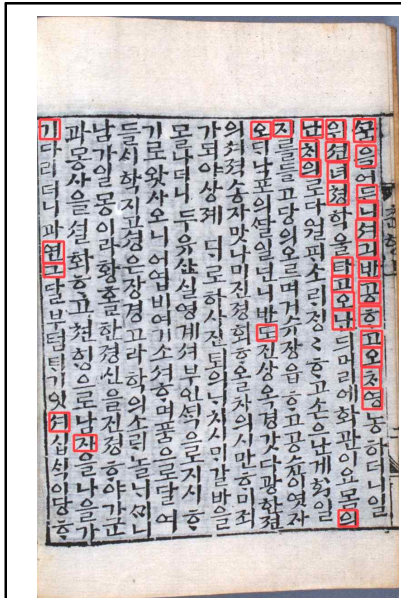 꿈을어드니셔긔반공ᄒᆞ고오ᄎᆡ영농ᄒᆞ더니일
위션녀쳥학을타고오난ᄃᆡ머리에화관이요몸의
난ᄎᆡ의로다월ᄑᆡ소ᄅᆡ징징ᄒᆞ고손으난계화일
지를들고당의오르며거수장읍ᄒᆞ고공슌이엿자
오ᄃᆡ낙포의ᄯᆞᆯ일넌니반도진상옥경갓다광한젼
의셔젹송자맛나미진졍회ᄒᆞ올차의시만ᄒᆞ미죄
가되야상졔ᄃᆡ로ᄒᆞ사진토의ᄂᆡ치시ᄆᆡ갈바을
몰나더니두유산실영계셔부인ᄃᆡᆨ으로지시ᄒᆞ
기로왓사오니어엽비여기소셔ᄒᆞ며품으로달여
들ᄉᆡ학지고셩은장경고라학의소ᄅᆡ놀ᄂᆡᄭᆡ니
남가일몽이라황홀한졍신을진졍ᄒᆞ야가군
과몽사을셜화ᄒᆞ고쳔ᄒᆡᆼ으로남자을나을가
기다리더니과연그달부텀ᄐᆡ기잇셔십삭이당ᄒᆞ